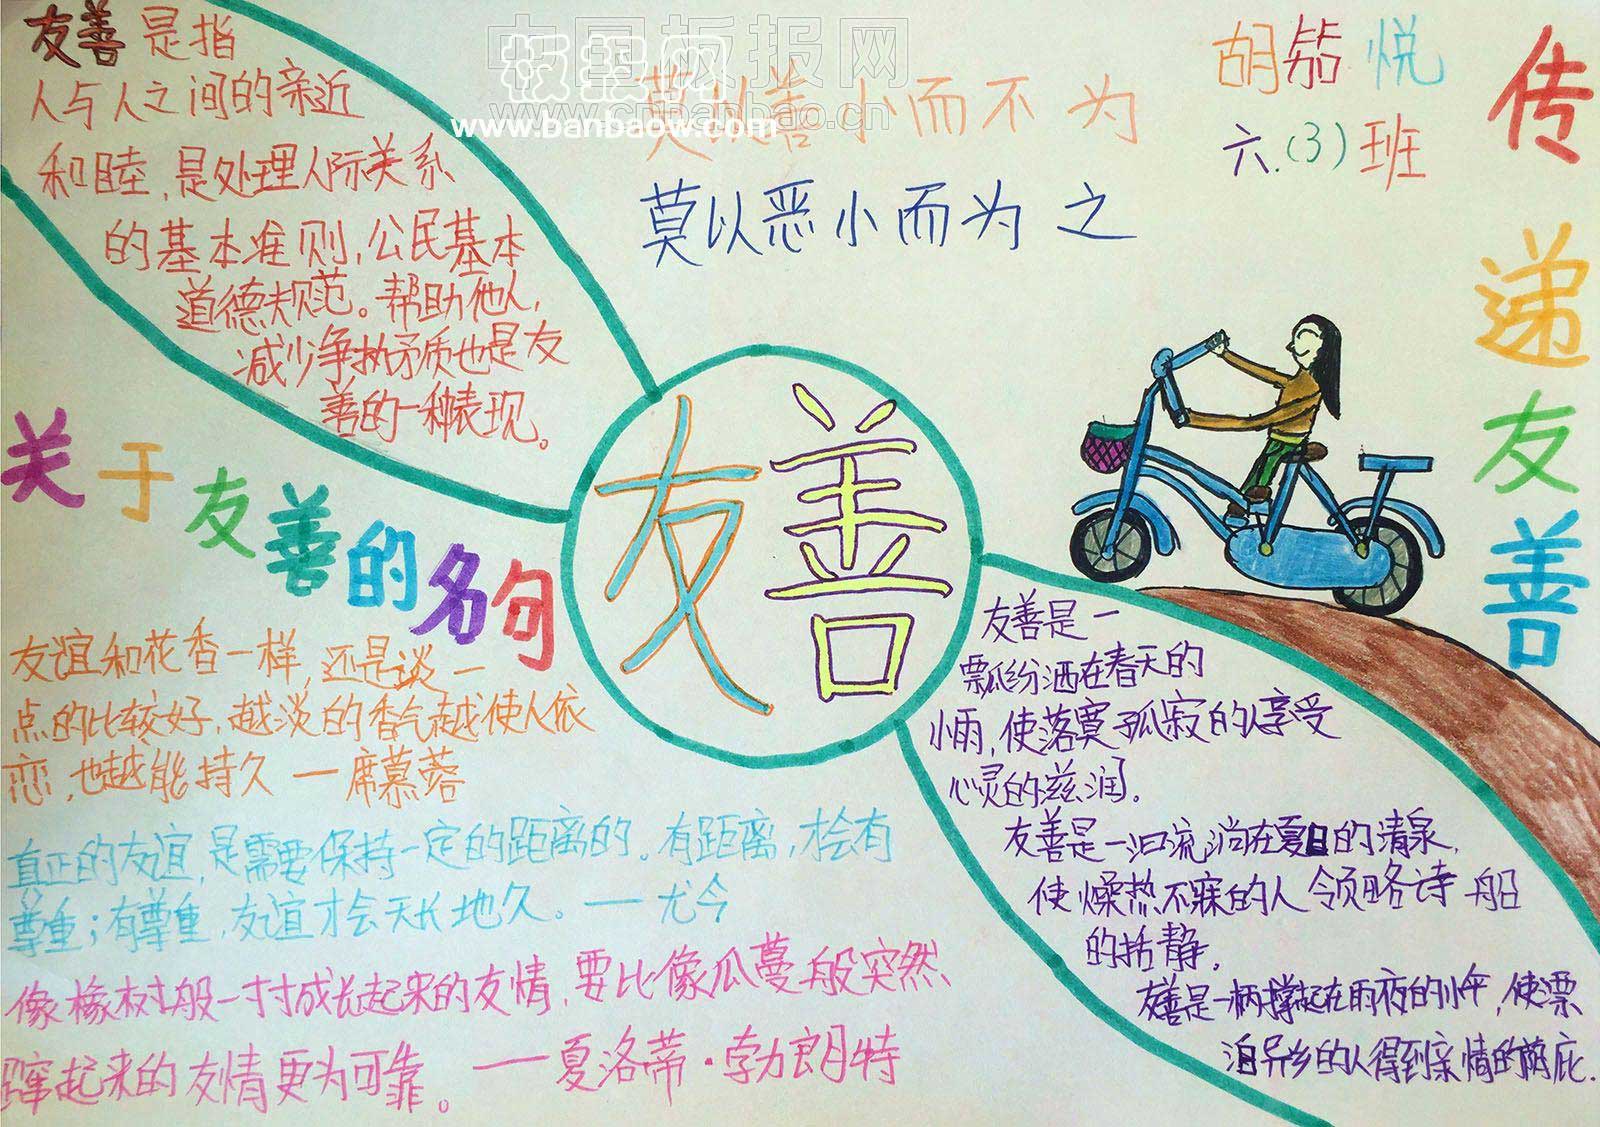 友善是指
人与人之间的亲近
和睦,是处理人际关系
的基本准则,公民基本
道德规范。帮助他人,
减少争执矛质也是友
善的一种表现。
中国板报网
板报网
www.cnbanbao.cn
www.banbaow.com
莫以善小而不为
莫以恶小而为之
胡 悦
六.(3)班
传递友善
关于友善的名句
友谊和花香一样,还是淡一
点的比较好,越淡的香气越使人依
恋,也越能持久 一席慕蓉
真正的友谊,是需要保持一定的距离的。有距离,才会有
尊重;有尊重,友谊才会天长地久。一尤今
像橡树般一寸寸成长起来的友情,要比像瓜蔓般突然
蹿起来的友情更为可靠。——夏洛蒂·勃朗特
友善
友善是一
飘纷洒在春天的
小雨,使落寞孤寂的人享受
心灵的滋润。
友善是一汩流淌在夏日的清泉,
使燥热不寐的人领略诗般
的恬静,
友善是一柄撑起在雨夜的小伞,使漂
泊异乡的人得到亲情的荫庇.